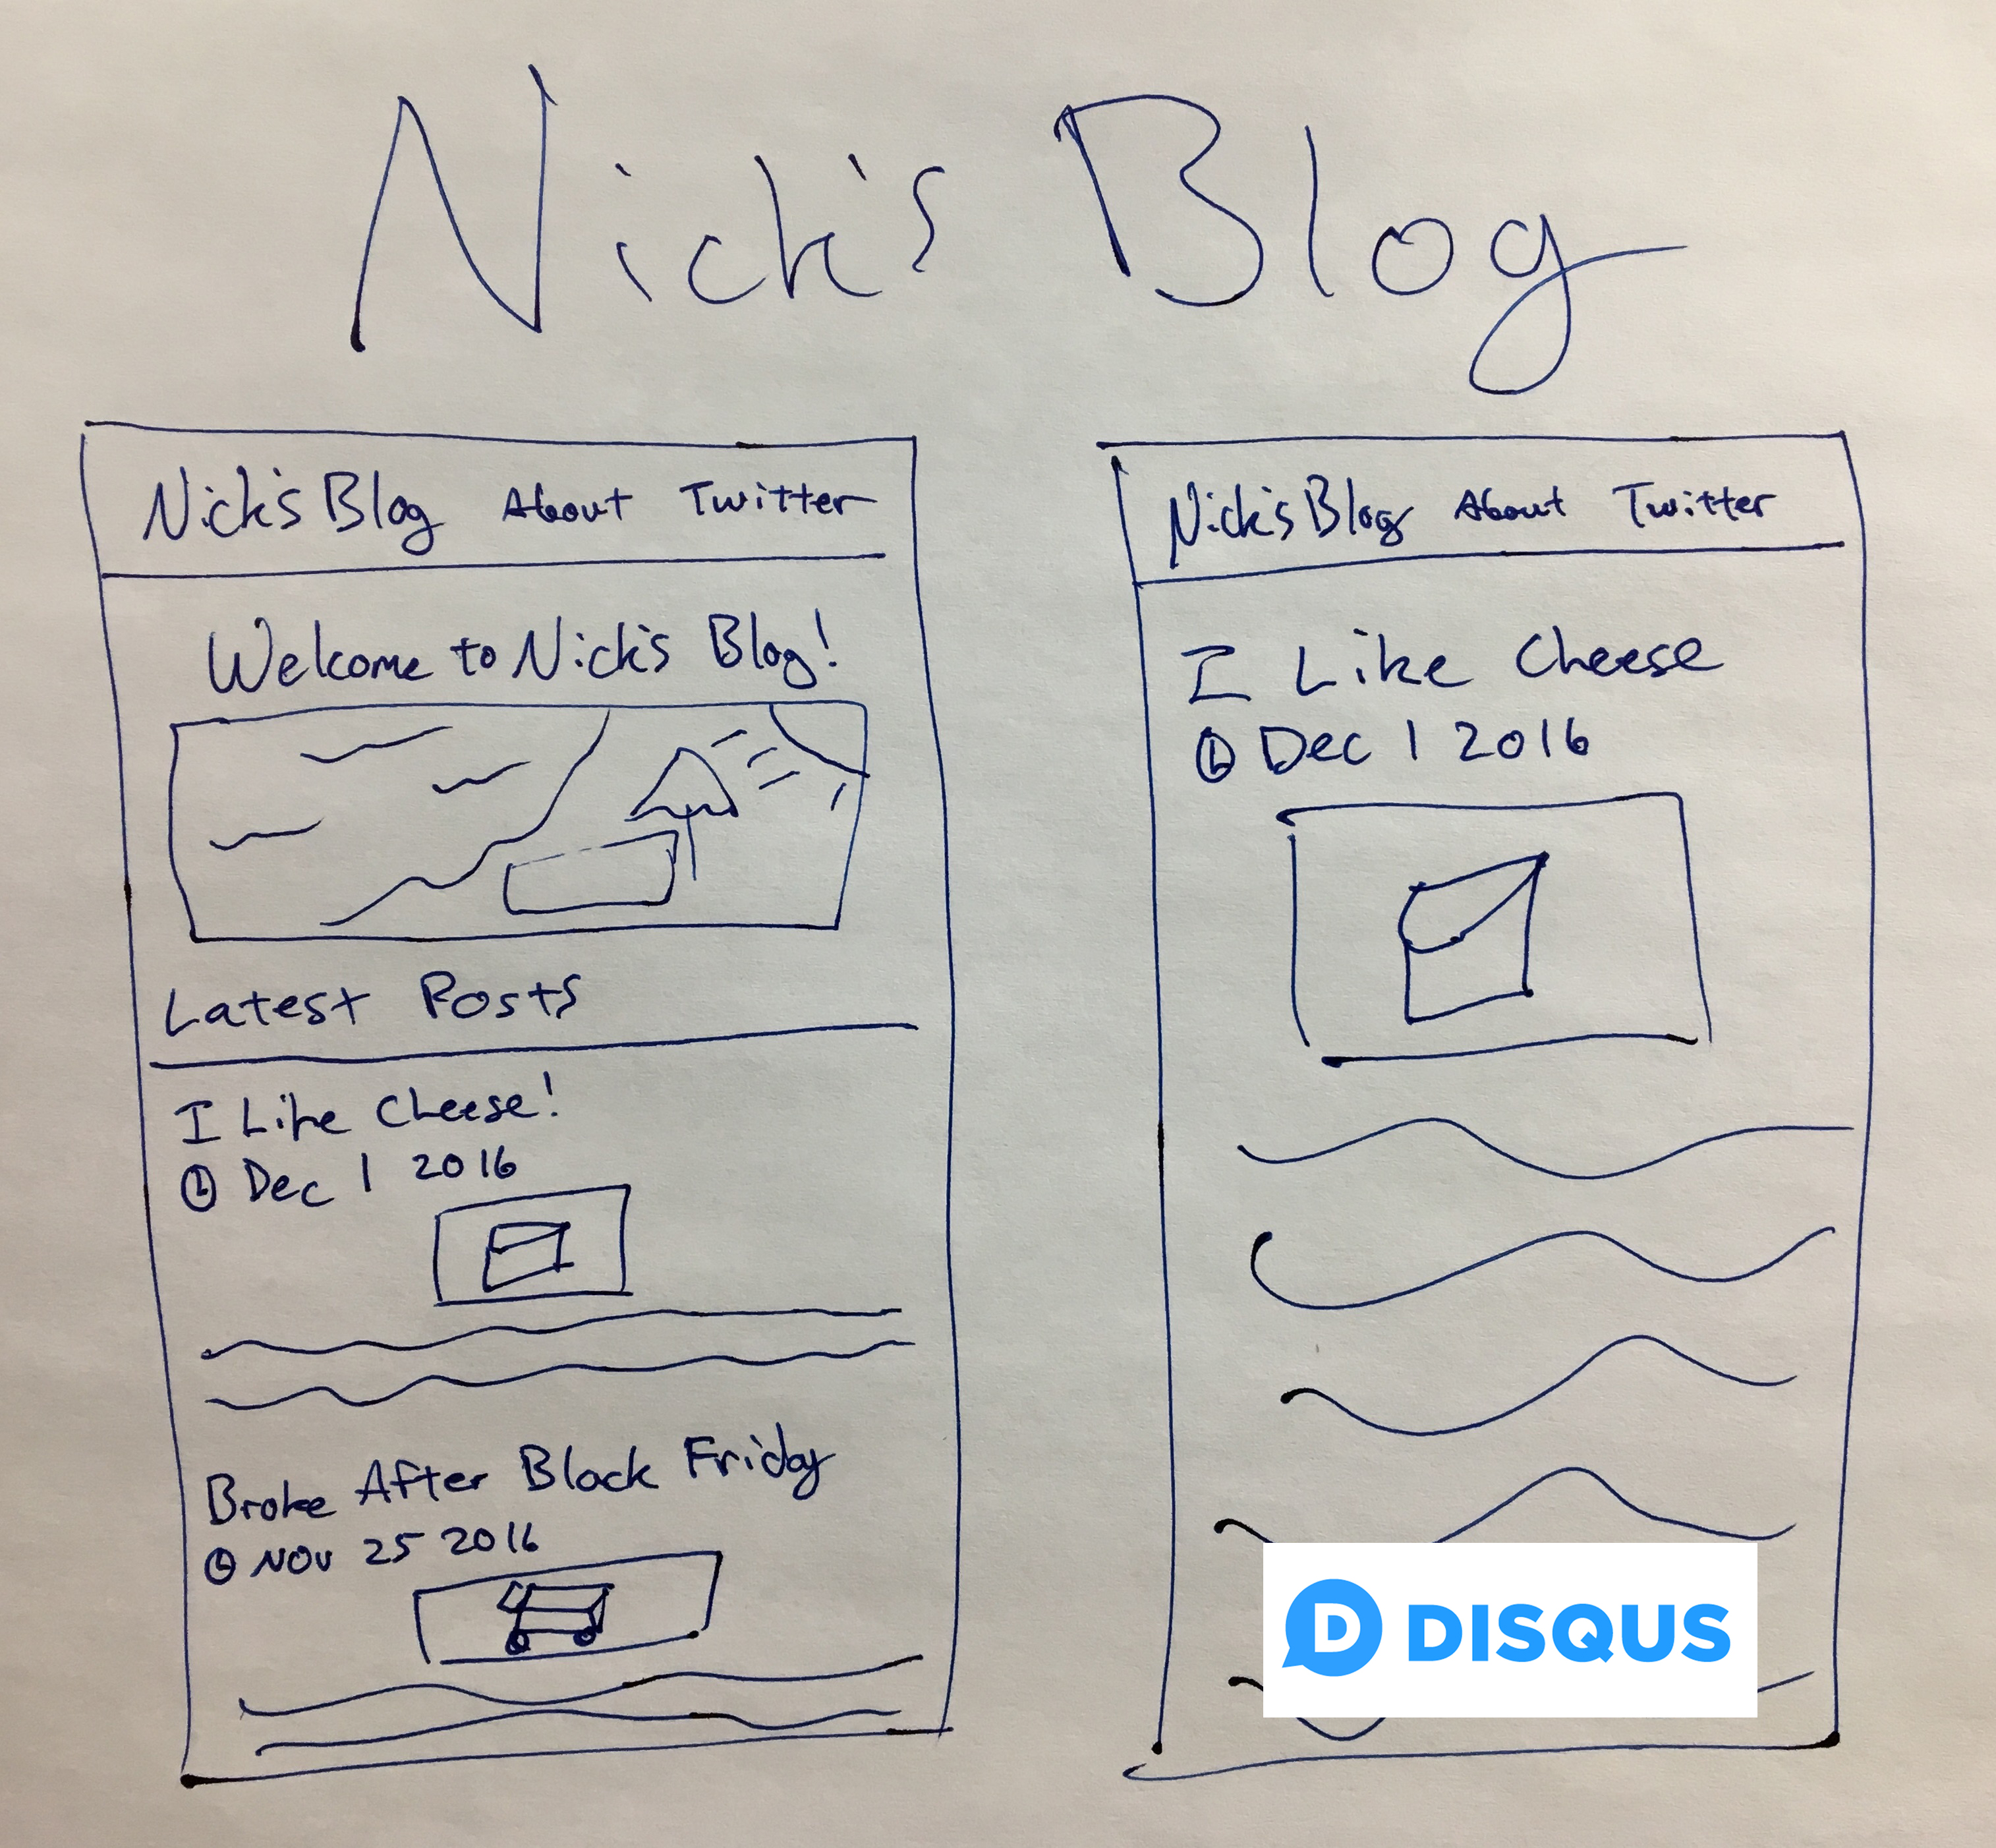 Nick's Blog
Nick's Blog About Twitter
Welcome to Nick's Blog!
Latest Posts
I Like Cheese!
Dec 1 2016
Broke After Black Friday
Nov 25 2016
Nick's Blog About Twitter
I Like Cheese
Dec 1 2016
DISQUS